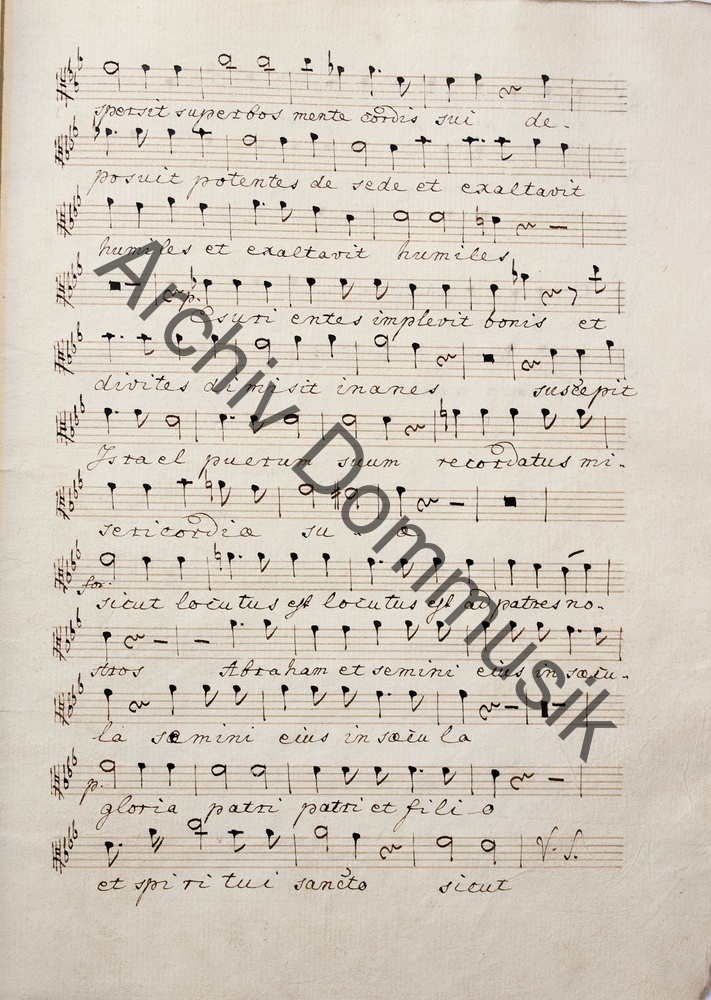 spersit superbos mente cordis sui de-
posuit potentes de sede et exaltavit
humiles et exaltavit humiles
p.
Esuri entes implevit bonis et
divites dimisit inanes suscepit
Israel puerum suum recordatus mi-
sericordiæ su - æ
for.
sicut locutus est locutus est ad patres no-
stros Abraham et semini eius in sæcu-
la semini eius in sæcu la
p.
gloria patri patri et fili o
et spi ri tui sancto sicut
V. S.
Archiv Dommusik